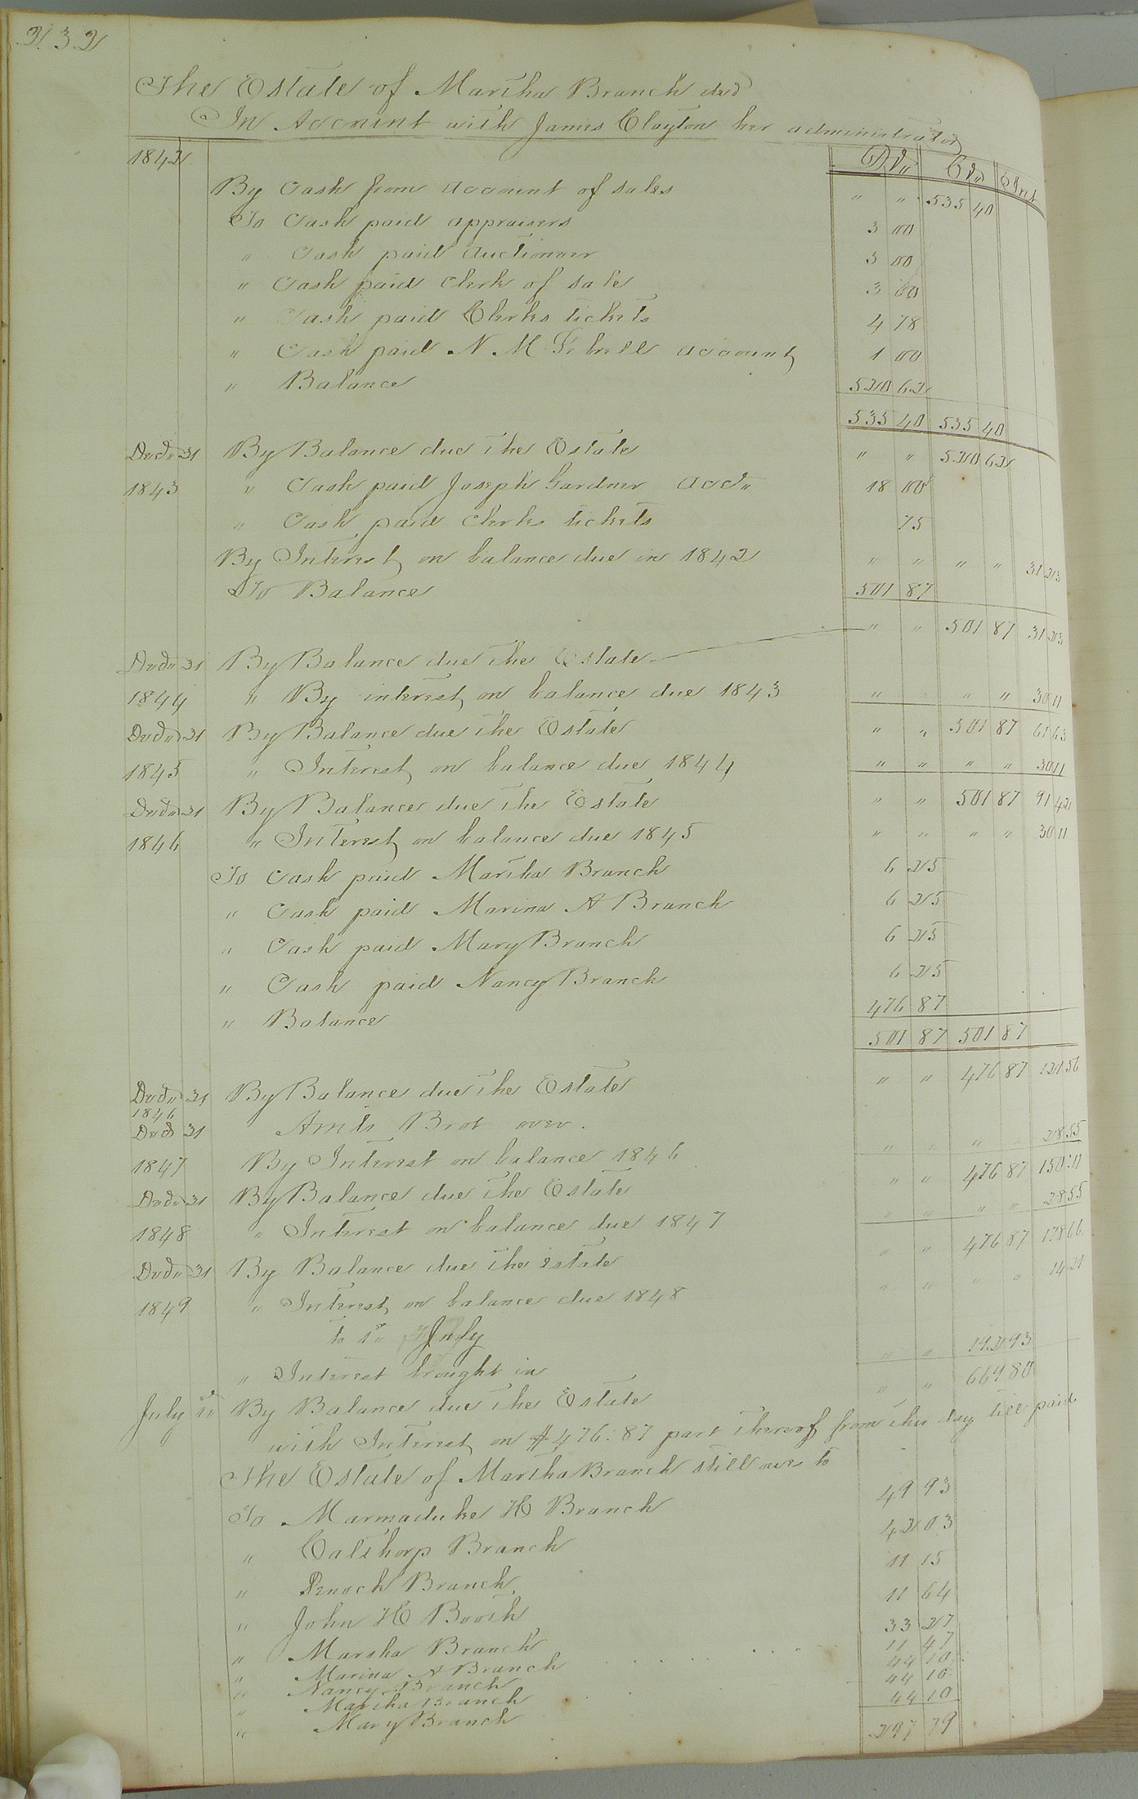 232
The Estate of Martha Branch decd
In Account with James Clayton her administrator
1842 Dr Cr Int
By Cash from account of sales " " 535 40
To Cash paid appraisers 3 00
" Cash paid Auctioneer 3 00
" Cash paid Clerk of sale 3 00
" Cash paid Clerks tickets 4 78
" Cash paid N. M. account 1 00
" Balance 520 62
535 40 535 40
Decr 31 By Balance due the Estate " " 520 62
1843 " Cash paid Joseph Gardner Acct 18 00
" Cash paid Clerks tickets 75
By Interest on balance due in 1842 " " " " 31 23
To Balance 501 87
Decr 31 By Balance due the Estate " " 501 87 31 23
1844 " By interest on balance due 1843 " " " " 30 11
Decr 31 By Balance due the Estate " " 501 87 61 63
1845 " Interest on balance due 1844 " " " " 30 11
Decr 31 By Balance due the Estate " " 501 87 91 42
1846 " Interest on balance due 1845 " " " " 30 11
To Cash paid Martha Branch 6 25
" Cash paid Marina A Branch 6 25
" Cash paid Mary Branch 6 25
" Cash paid Nancy Branch 6 25
" Balance 476 87
501 87 501 87
Decr 31 By Balance due the Estate " " 476 87 121 56
1846
Decr 31 Amts Brot over.
1847 By Interest on balance 1846 " " " " 28 55
Decr 31 By Balance due the Estate " " 476 87 150 11
1848 " Interest on balance due 1847 " " " " 28 55
Decr 31 By Balance due the estate " " 476 87 178 66
1849 " Interest on balance due 1848 " " " " 14 21
to 1st July
" Interest brought in " " 192 93
July By Balance due the Estate " " 669 80
with Interest on $476.87 part thereof from this day till paid
The Estate of Martha Branch still owes to
To Marmaduke H Branch 49 93
" Calthorp Branch 42 03
" Enoch Branch 11 15
" John H Booth 11 64
" Marsha Branch 33 27
" Marina A Branch 11 47
" Nancy Branch 44 10
" Martha Branch 44 10
" Mary Branch 44 10
297 79